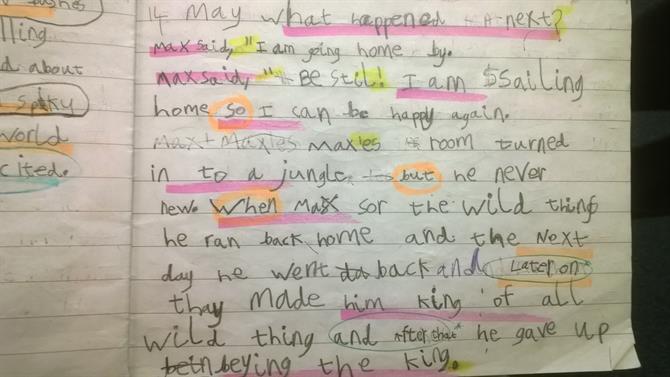 14 May What happened next?
lling
Max said, "I am going home by.
d about
Max said, "BE still! I am Ssailing
spiky
home so I can be happy again.
world
Max's room turned
cited.
in to a jungle but he never
new. When Max sor the wild thing
he ran back home and the Next
day he went back and Later on
thay made him king of all
wild thing and after that he gave up
beying the king.